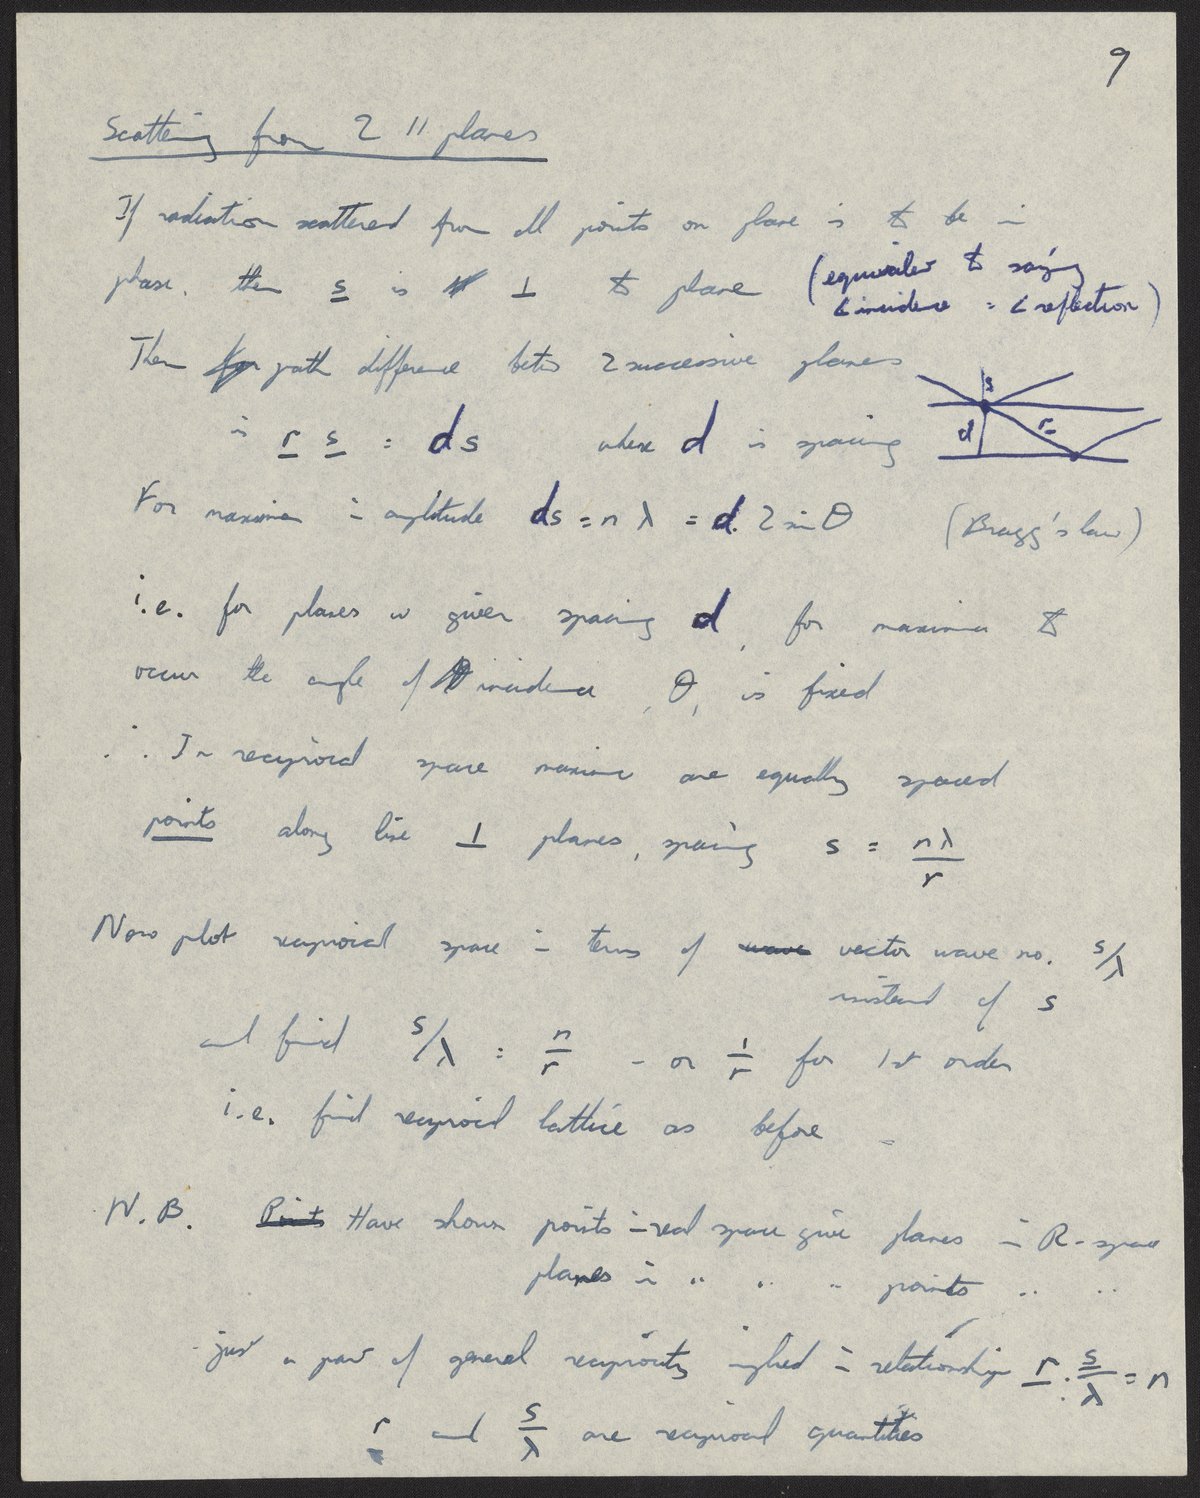 9
Scattering from 2 || planes
If radiation scattered from all points on plane is to be in
phase, then s is ⊥ to plane (equivalent to saying
∠ incidence = ∠ reflection)
Then path difference betw 2 successive planes
is r s = ds where d is spacing
s
d
r
For maxima in amplitude ds = n λ = d. 2 sin θ (Bragg's law)
i.e. for planes w given spacing d, for maxima to
occur the angle of incidence, θ, is fixed
∴ In reciprocal space maxima are equally spaced
points along line ⊥ planes, spacing s = nλ/r
Now plot reciprocal space in terms of wave vector wave no. s/λ
instead of s
and find s/λ = n/r - or 1/r for 1st order
i.e. find reciprocal lattice as before -
N.B. Points Have shown points in real space give planes in R-space
planes in " " " points " "
- just a part of general reciprocity implied in relationship r . s/λ = n
r and s/λ are reciprocal quantities